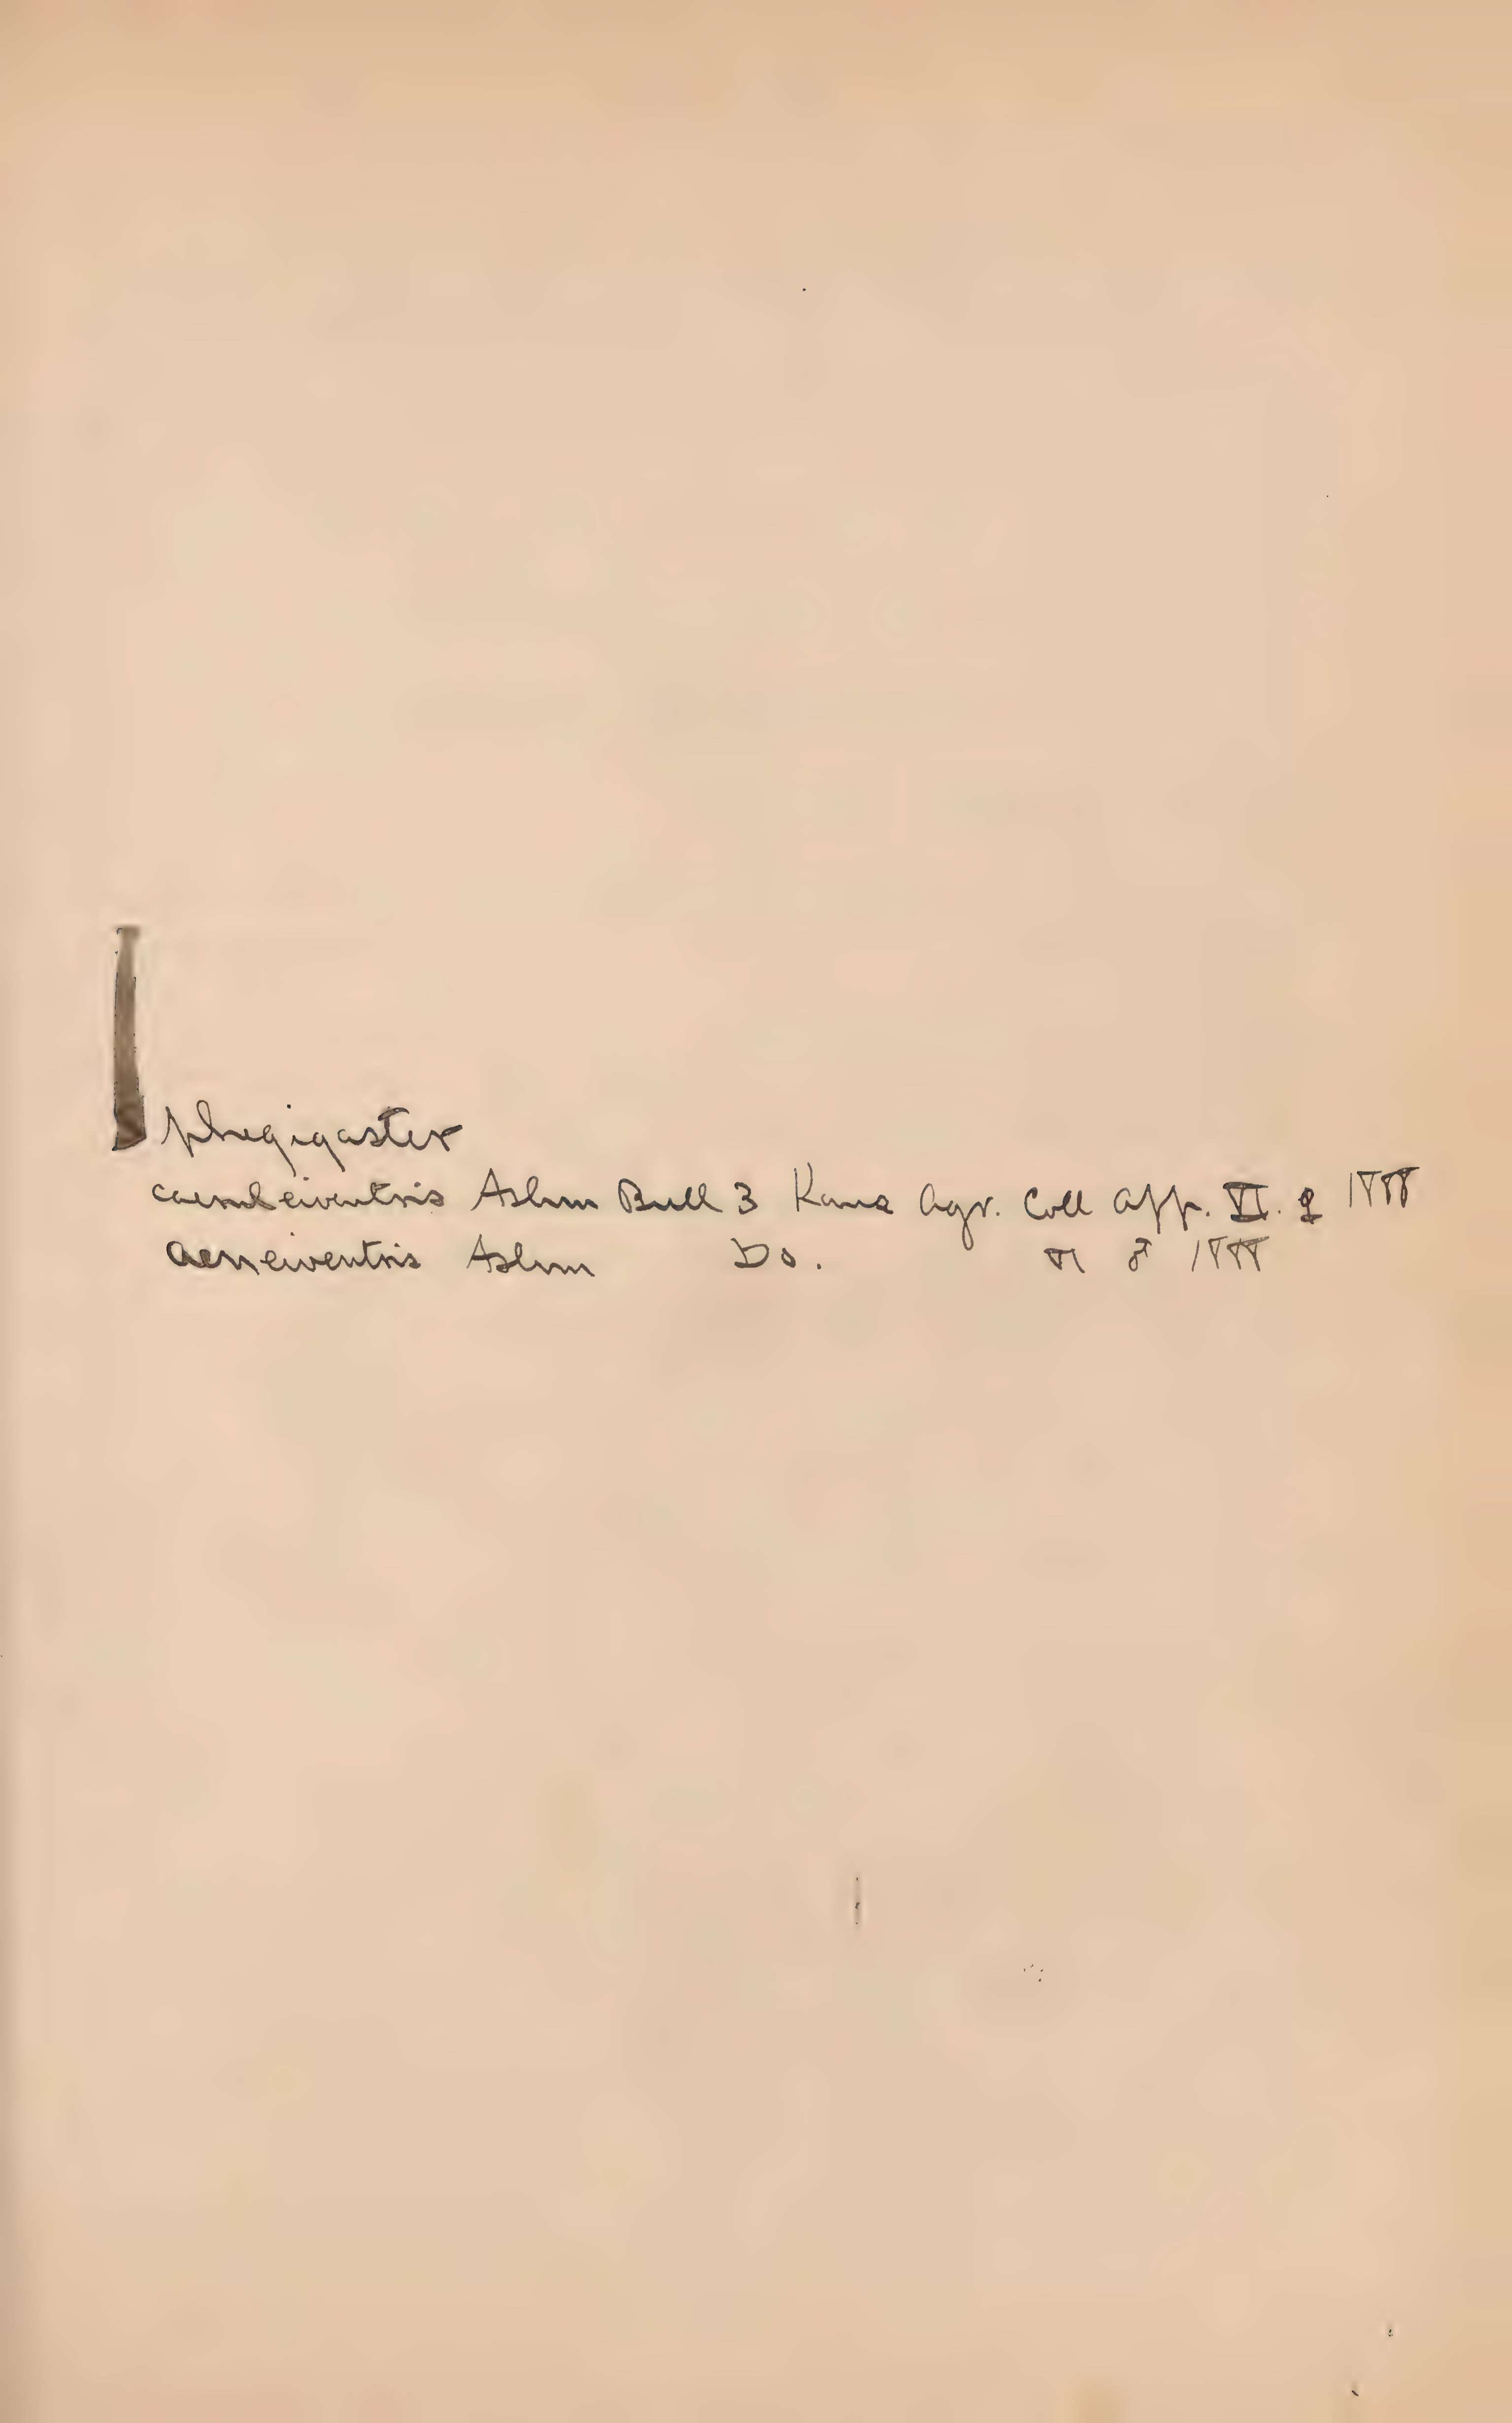 Sphegigaster
caeruleiventris Ashm Bull 3 Kans Agr. Coll App. VI. ♀ 1888
aeneiventris Ashm Do. VI ♂ 1888